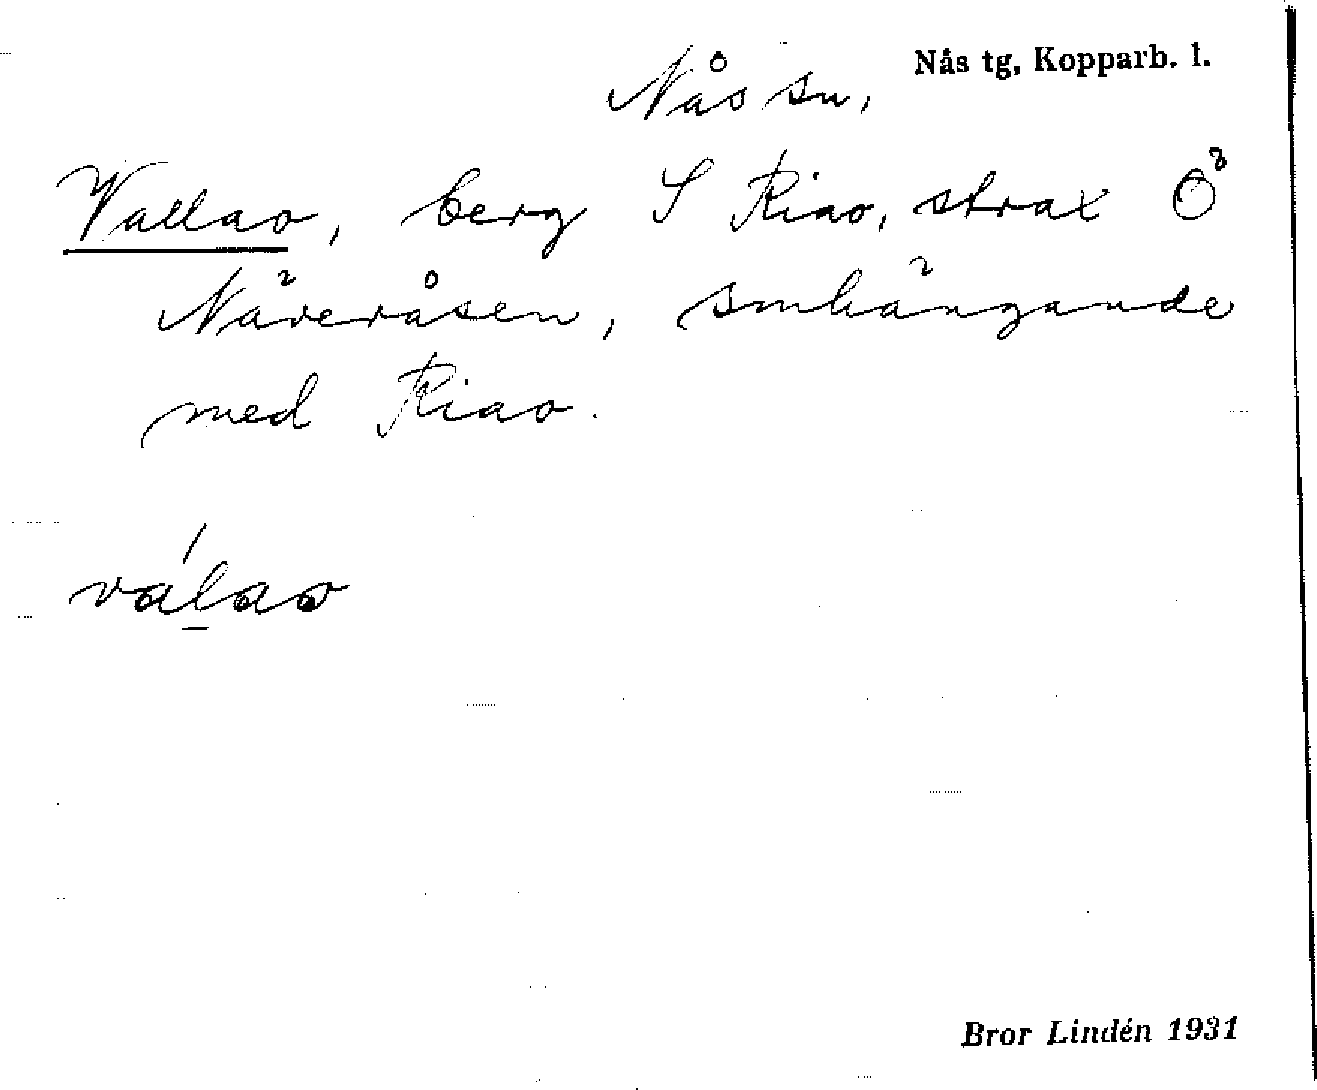 Nås tg, Kopparb. l.
Nås sn,
Vallao, berg S Riao, strax Ö
Näveråsen, smhängande
med Riao.
válao
Bror Lindén 1931